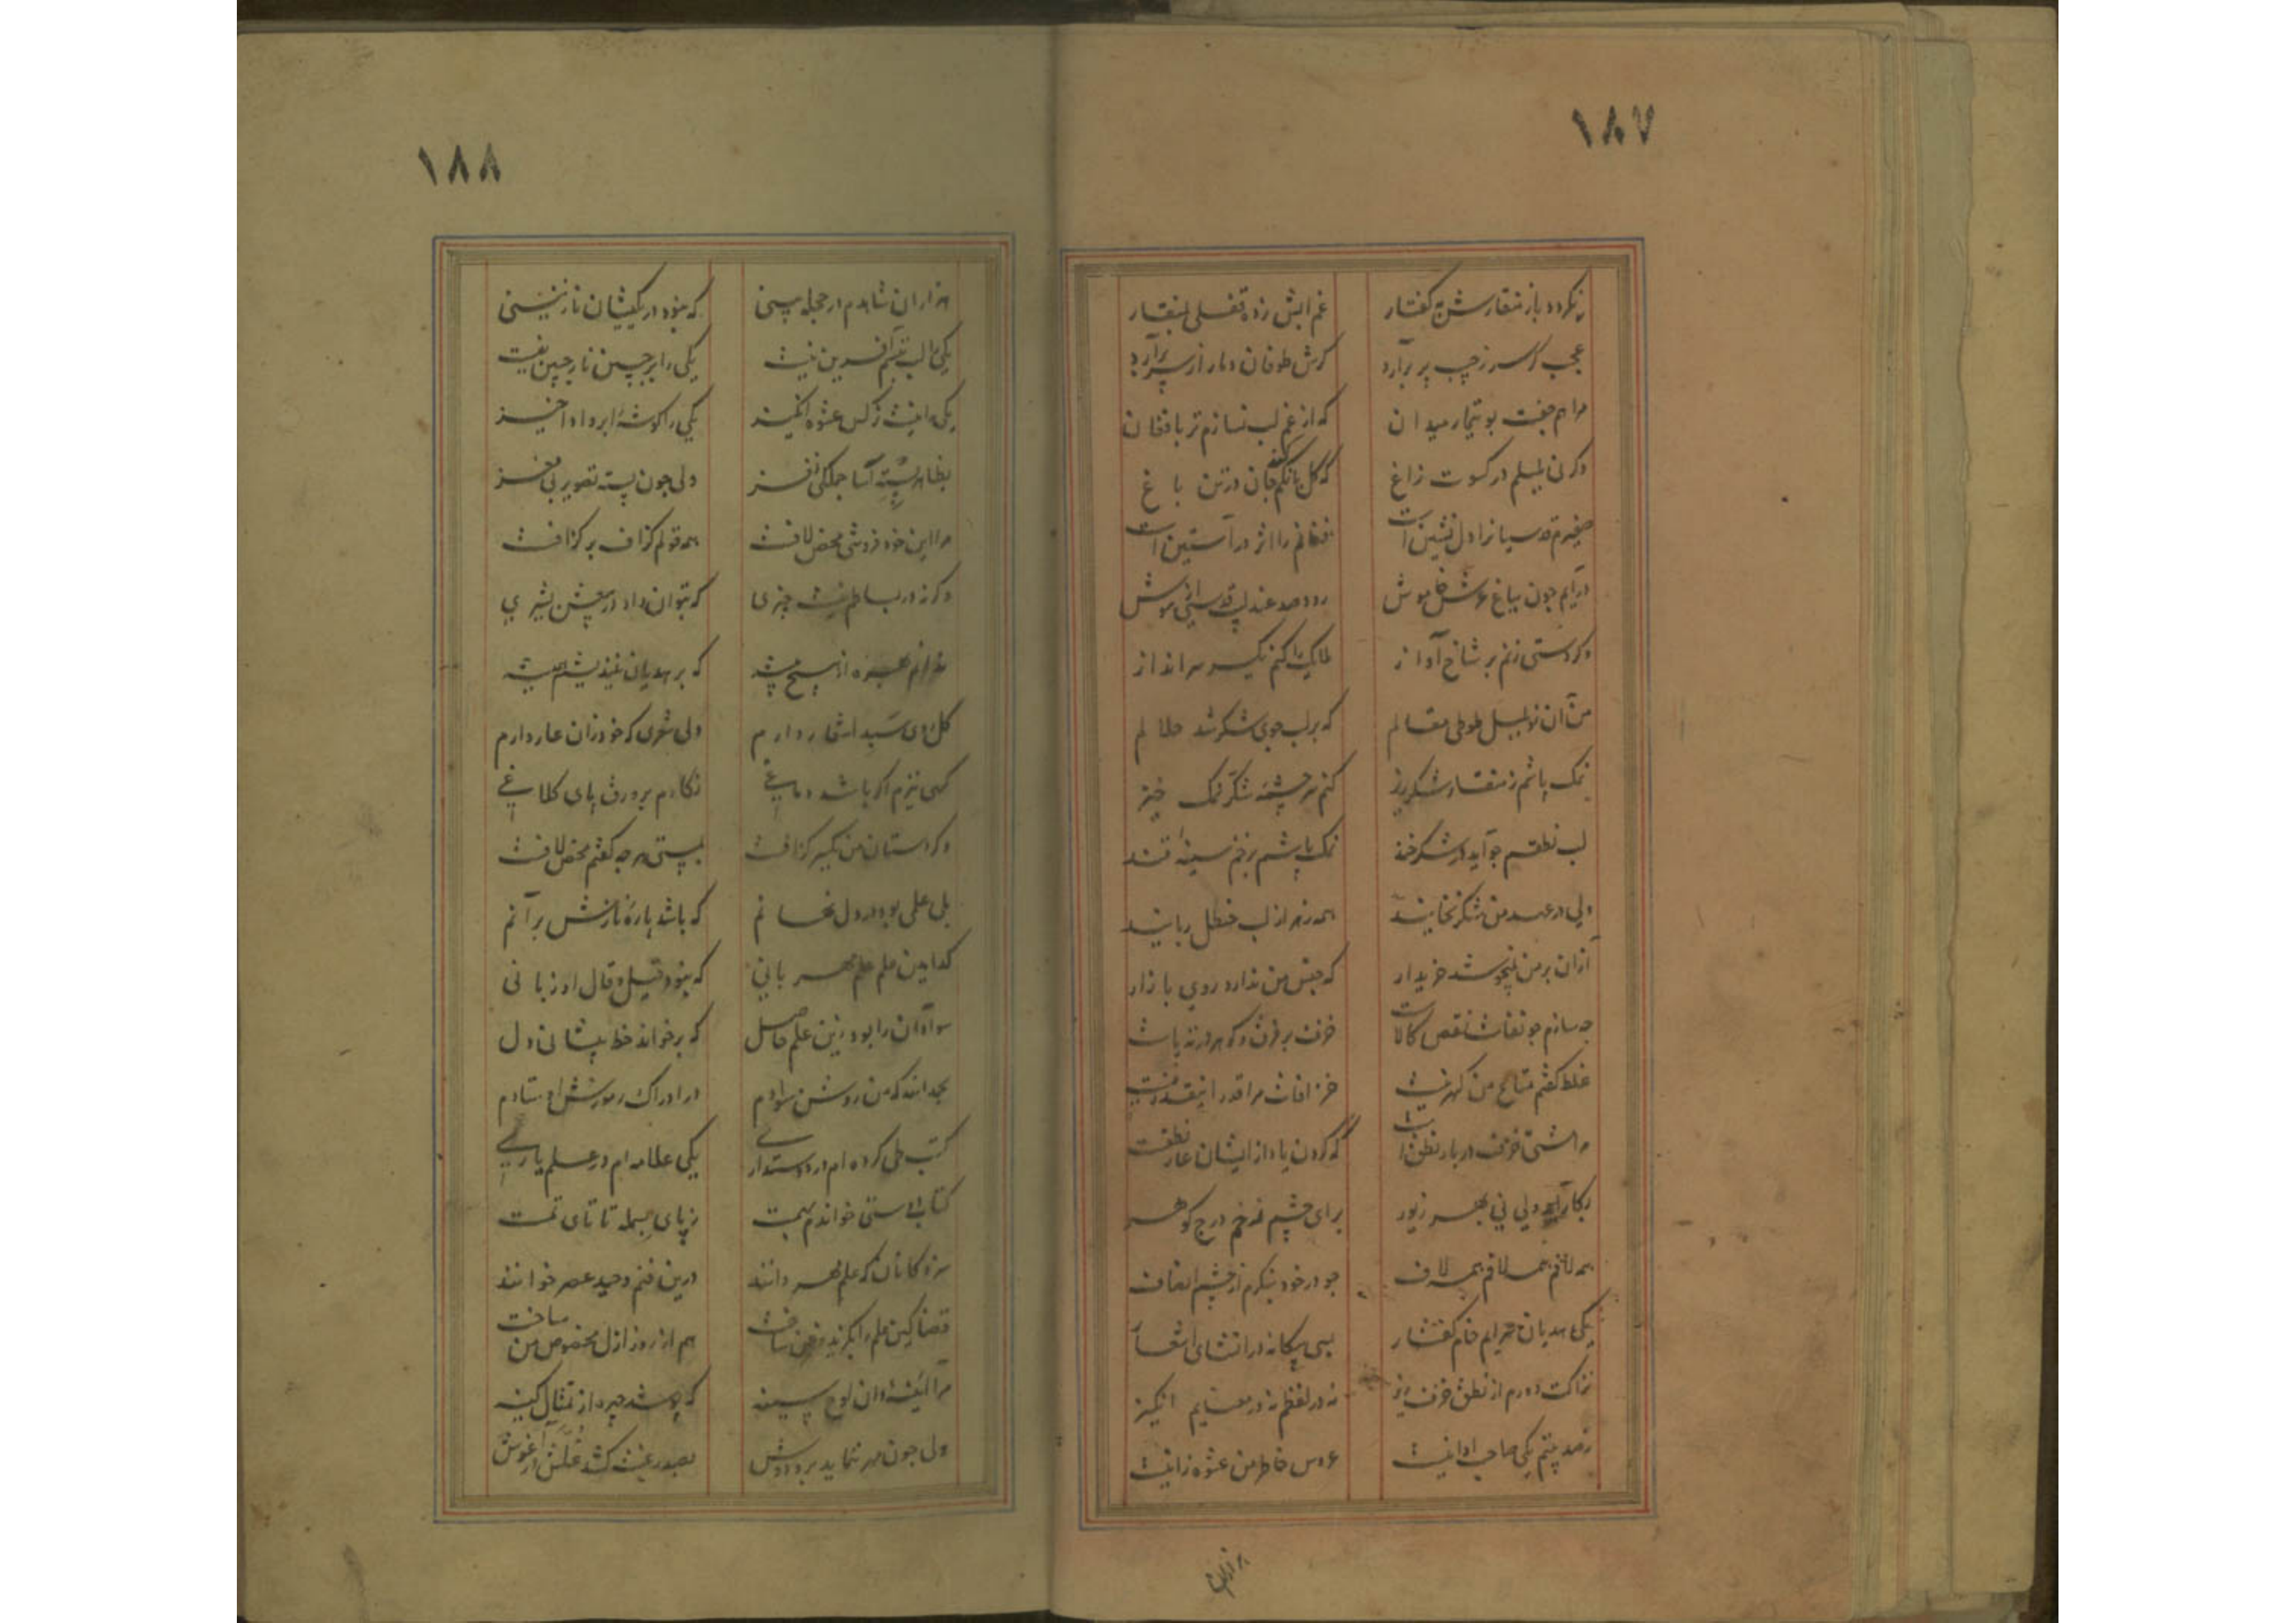 ١٨٧
نکردد باز منقارش بکفتار
غم ابش زده قفلی بمنقار
عجب کر سر زجیب پر برآرد
کرش طوفان دمار از سر برآرد
مرا هم جفت بوتیمار میدان
که از غم لب نسازم تر بافغان
وکرنی بلبلم در کسوت زاغ
که کل بانکم کند جان در تن باغ
صفیرم قدسیانرا دل نشین است
فغانم را اثر در آستین است
درایم چون بباغ عرش خاموش
رود صد عندلیب قدسی از هوش
وکر دستی زنم بر شاخ آواز
ملایک را کنم یکسر سرانداز
من آن نو بلبل طوطی مقالم
که بر لب جوی شکر شد حلالم
نمک پاشم ز منقار شکرریز
کنم سرچشمه شکر نمک خیز
لب نطقم چو آید در شکرخند
نمک پاشم بزخم سینه قند
ولی در عهد من شکر نخایند
همه زهر از لب حنظل ربایند
ازان بر من نجوشد خریدار
که جنس من ندارد روی بازار
چه سازم چو نقاشا نقص کالاست
خزف بر فرق و کوهر در ته پاست
غلط کفتم متاع من کهر نیست
خزافات مرا قدر اینقدر نیست
مشتی خزف در بار نطق است
که کردن یاد از ایشان عار نطقست
بکار آید ولی نی بهر زیور
برای چشم زخم درج کوهر
همه لافم همه لافم همه لاف
چو در خود بنکرم از چشم انصاف
یکی هدیان سرایم خام کفتار
بسی بیکانه در انشای اشعار
نزاکت دورم از نطق خزف ریز
نه در لفظم نه در معنایم انکیز
ز صد بیتم یکی صاحب ادا نیست
عروس خاطر من عشوه زا نیست
هزاران
١٨٨
هزاران شاهدم در حجله بینی
که نبود در یکیشان نازنینی
یکی را لب تبسم آفرین نیست
یکی را بر جبین ناز چین نیست
یکی را نیست نرکس عشوه انکیز
یکی را کوشه ابرو ادا خیز
بظاهر پسته آسا جملکی نغز
ولی چون پسته تصویر بی مغز
مرا این خود فروشی محض لافست
همه قولم کزاف بر کزافست
وکرنه در بساطم نیست چیزی
که بتوان داد در پیشش پشیزی
ندارم بهره از هیچ پیشه
که بر هدیان نیندیشم همیشه
کل روی سبد اشعار دارم
ولی شعری که خود زان عار دارم
کهی نیزم اکر باشد دماغی
نکارم بر ورق پای کلاغی
وکر دستان من یکسر کزافست
به پستی هر چه کفتم محض لافست
بلی علمی بود در دل نهانم
که باشد پاره نازش بر آنم
کدامین علم علم مهربانی
که نبود قیل و قال او زبانی
سواد آن را بود زین علم حاصل
که برخواند خط پیشانی دل
بحمدالله که من روشن سوادم
در ادراک رموزش اوستادم
کتب طی کرده ام در دوستداری
یکی علامه ام در علم یاری
کتاب دوستی خواندم بهمت
ز پای بسمله تا تای تمت
سزد کانان که علم مهر دانند
درین فنم وحید عصر خوانند
قضا کین علم را بکزیده فن ساخت
هم از روز ازل مخصوص من ساخت
مرا آئینه دان لوح سینه
که پوشد چهره از تمثال کینه
ولی چون مهر بنماید بر و دوش
بصد رغبت کشد عکسش در آغوش